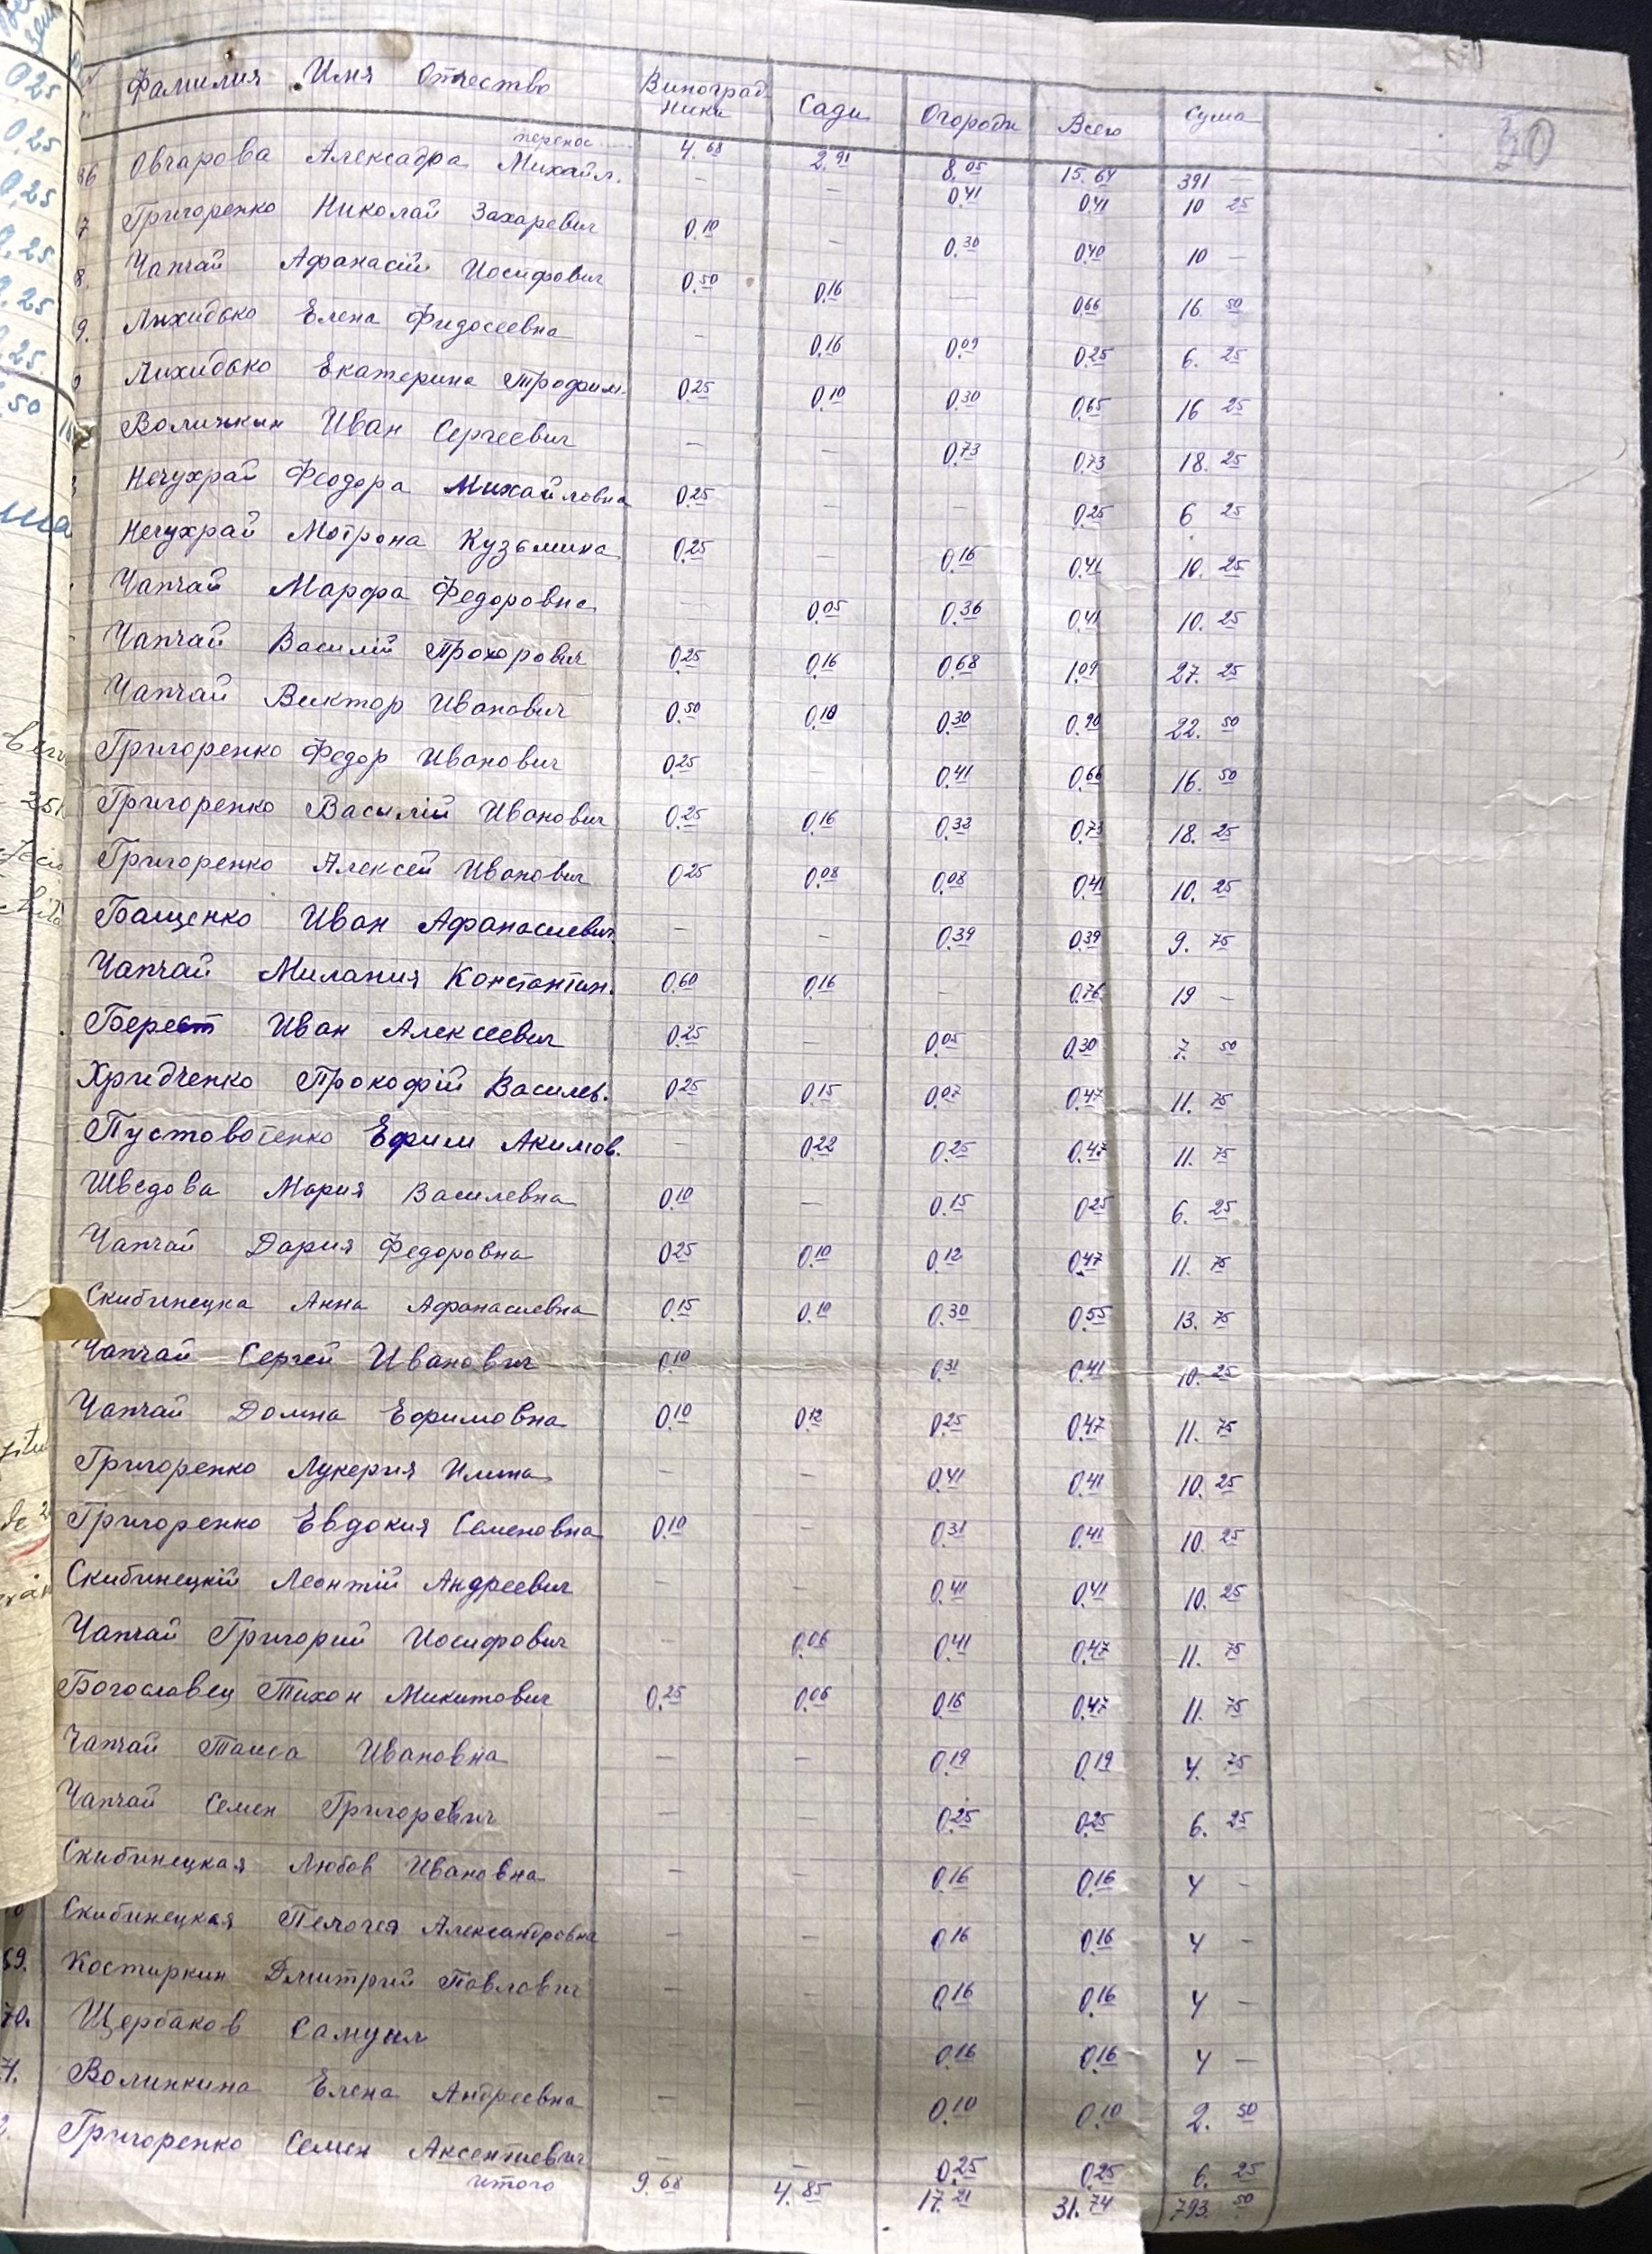 Фамилия Имя Отчество Виноградники Сади Огороди Всего Сума
30
перенос 4.68 2.91 8.05 15.64 391 —
36 Овчарова Алексадра Михайл. — — 0.41 0.41 10 25
7 Григоренко Николай Захаревич 0.10 — 0.30 0.40 10 —
8. Чапчай Афанасій Иосифович 0.50 0.16 — 0.66 16. 50
9. Лихидько Елена Фидосеевна — 0.16 0.09 0.25 6. 25
Лихидько Екатерина Трофим. 0.25 0.10 0.30 0.65 16 25
Волинкин Иван Сергеевич — — 0.73 0.73 18. 25
Нечухрай Феодора Михайловна 0.25 — — 0.25 6 25
Нечухрай Мотрона Кузьмина 0.25 — 0.16 0.41 10. 25
Чапчай Марфа Федоровна — 0.05 0.36 0.41 10. 25
Чапчай Василій Прохорович 0.25 0.16 0.68 1.09 27. 25
Чапчай Виктор Иванович 0.50 0.10 0.30 0.90 22. 50
Григоренко Федор Иванович 0.25 — 0.41 0.66 16. 50
Григоренко Василій Иванович 0.25 0.16 0.32 0.73 18. 25
Григоренко Алексей Иванович 0.25 0.08 0.08 0.41 10. 25
Бащенко Иван Афанасиевич — — 0.39 0.39 9. 75
Чапчай Милания Константин. 0.60 0.16 — 0.76 19 —
Берест Иван Алексеевич 0.25 — 0.05 0.30 7. 50
Хридченко Прокофій Василев. 0.25 0.15 0.07 0.47 11. 75
Пустовотенко Ефим Акимов. — 0.22 0.25 0.47 11. 75
Шведова Мария Василевна 0.10 — 0.15 0.25 6. 25
Чапчай Дария Федоровна 0.25 0.10 0.12 0.47 11. 75
Скибинецка Анна Афанасиевна 0.15 0.10 0.30 0.55 13. 75
Чапчай Сергей Иванович 0.10 — 0.31 0.41 10. 25
Чапчай Домна Ефимовна 0.10 0.12 0.25 0.47 11. 75
Григоренко Лукерия Илина — — 0.41 0.41 10. 25
Григоренко Евдокия Семеновна 0.10 — 0.31 0.41 10. 25
Скибинецкій Леонтій Андреевич — — 0.41 0.41 10. 25
Чапчай Григорий Иосифович — 0.06 0.41 0.47 11. 75
Богославец Тихон Микитович 0.25 0.06 0.16 0.47 11. 75
Чапчай Таиса Ивановна — — 0.19 0.19 4. 75
Чапчай Семен Григоревич — — 0.25 0.25 6. 25
Скибинецкая Любов Ивановна — — 0.16 0.16 4 —
Скибинецкая Пелогея Александровна — — 0.16 0.16 4 —
69. Костиркин Дмитрий Павлович — — 0.16 0.16 4 —
70. Щербаков Самуил 0.16 0.16 4 —
71. Волинкина Елена Андреевна — 0.10 0.10 2. 50
Григоренко Семен Аксентиевич — — 0.25 0.25 6. 25
итого 9.68 4.85 17.21 31.74 793. 50